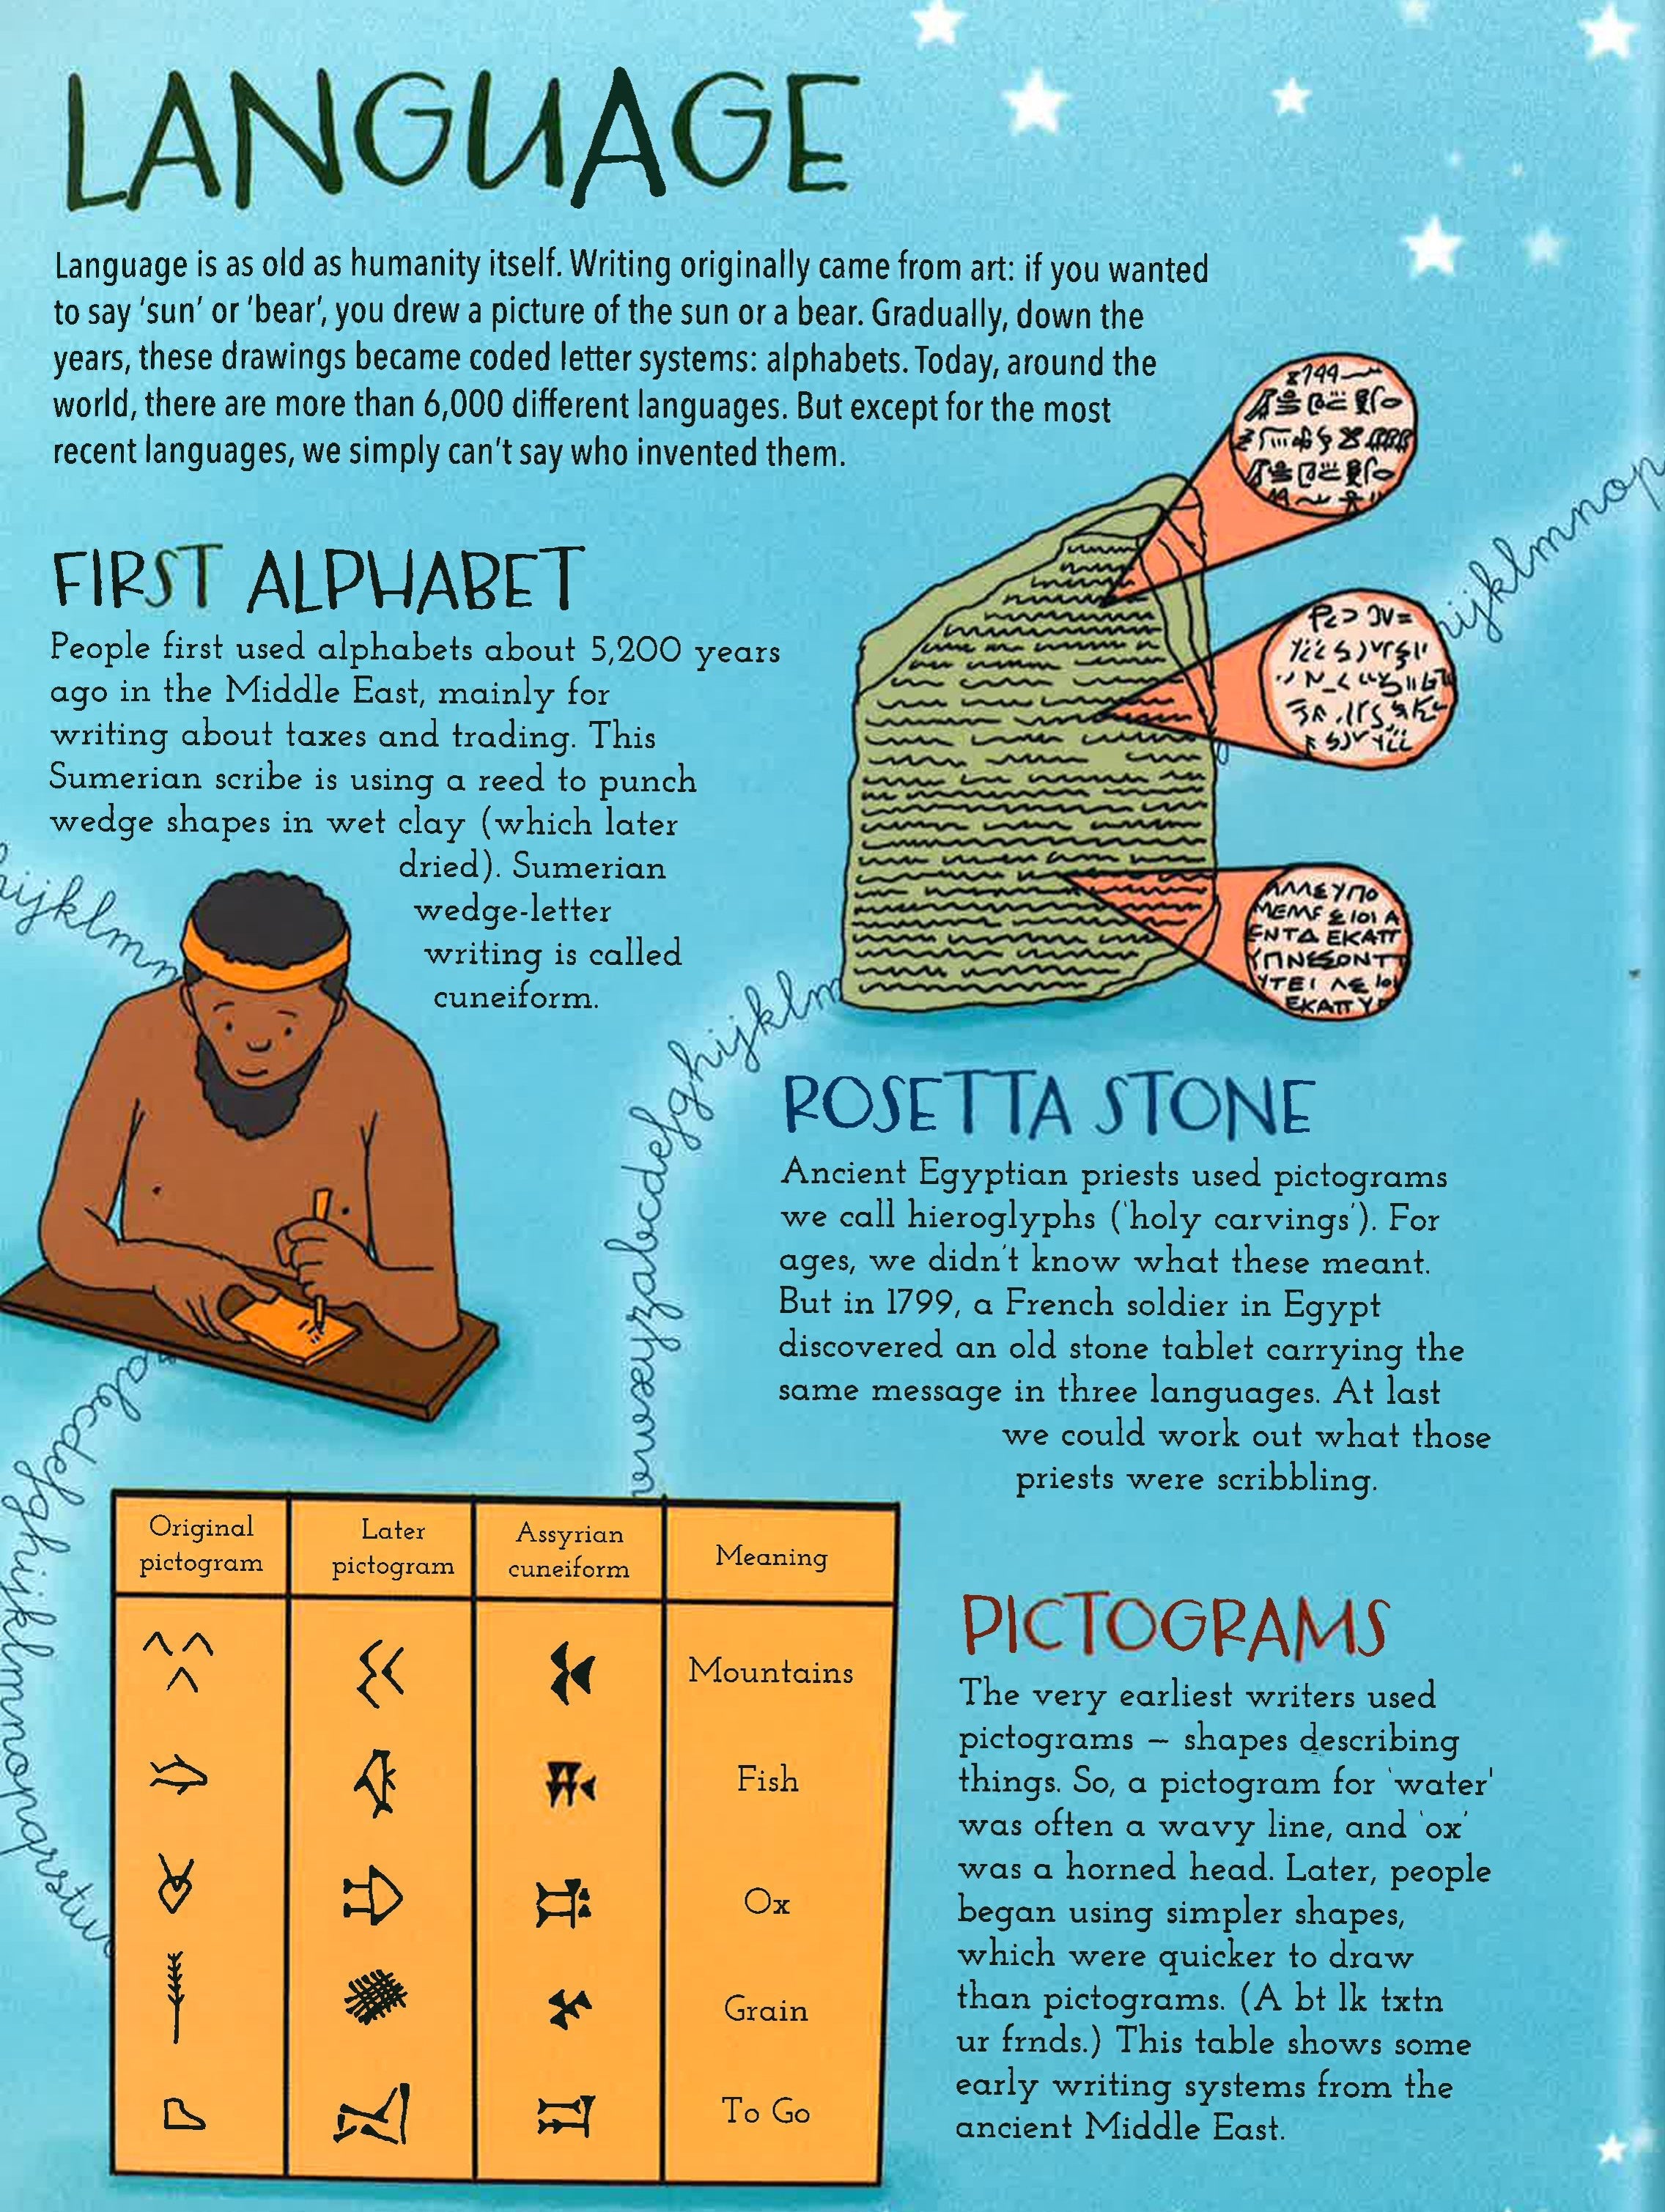 LANGUAGE
Language is as old as humanity itself. Writing originally came from art: if you wanted
to say 'sun' or 'bear', you drew a picture of the sun or a bear. Gradually, down the
years, these drawings became coded letter systems: alphabets. Today, around the
world, there are more than 6,000 different languages. But except for the most
recent languages, we simply can't say who invented them.
FIRST ALPHABET
People first used alphabets about 5,200 years
ago in the Middle East, mainly for
writing about taxes and trading. This
Sumerian scribe is using a reed to punch
wedge shapes in wet clay (which later
dried). Sumerian
wedge-letter
writing is called
cuneiform.
hijklmn
abcdefghijklmnopqrstuv
vwxyzabcdefghijklm
hijklmnop
ROSETTA STONE
Ancient Egyptian priests used pictograms
we call hieroglyphs ('holy carvings'). For
ages, we didn't know what these meant.
But in 1799, a French soldier in Egypt
discovered an old stone tablet carrying the
same message in three languages. At last
we could work out what those
priests were scribbling.
Original pictogram Later pictogram Assyrian cuneiform Meaning
Mountains
Fish
Ox
Grain
To Go
PICTOGRAMS
The very earliest writers used
pictograms – shapes describing
things. So, a pictogram for 'water'
was often a wavy line, and 'ox'
was a horned head. Later, people
began using simpler shapes,
which were quicker to draw
than pictograms. (A bt lk txtn
ur frnds.) This table shows some
early writing systems from the
ancient Middle East.